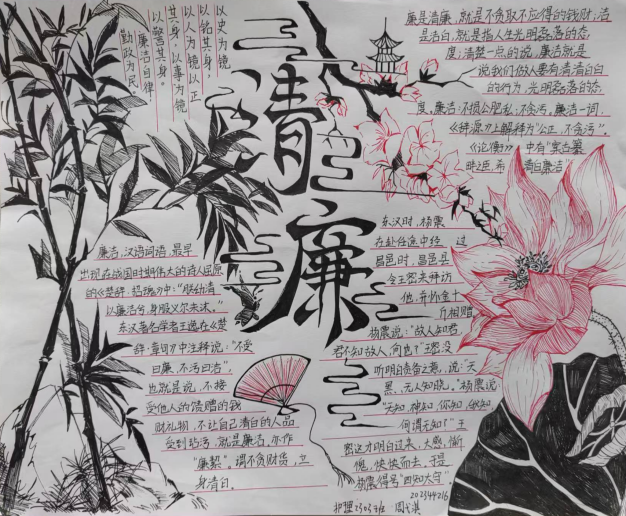 以史为镜
以铭其身，
以人为镜以正
其身，以事为镜
以警其身。
廉洁自律
勤政为民
清廉
廉是清廉，就是不贪取不应得的钱财，洁
是洁白，就是指人生光明磊落的态
度，清楚一点的说，廉洁就是
说我们做人要有清清白白
的行为，光明磊落的态
度，廉洁：不损公肥私，不贪污，廉洁一词，
《辞源》上解释为“公正，不贪污”。
《论衡》中有
清白廉洁”
廉洁，汉语词语，最早
出现在战国时期伟大的诗人屈原
的《楚辞·招魂》中：“朕幼清
以廉洁兮，身服义尔未沫。”
东汉著名学者王逸在《楚
辞·章句》中注释说：“不受
曰廉，不污曰洁”，
也就是说，不接
受他人的馈赠的钱
财礼物，不让自己清白的人品
受到玷污，就是廉洁，亦作
“廉絜”，谓不贪财货，立
身清白。
东汉时，杨震
在赴任途中经 过
昌邑时，昌邑县
令王密来拜访
他，并怀金十
斤相赠
杨震说：“故人知君，
君不知故人，何也？”王密没
听明白责备之意，说：“天
黑，无人知晓。”杨震说：
“天知，神知，你知，我知，
何谓无知？”王
密这才明白过来，大感惭
愧，怏怏而去，于是
杨震得名“四知太守”。
202344216
护理2303班